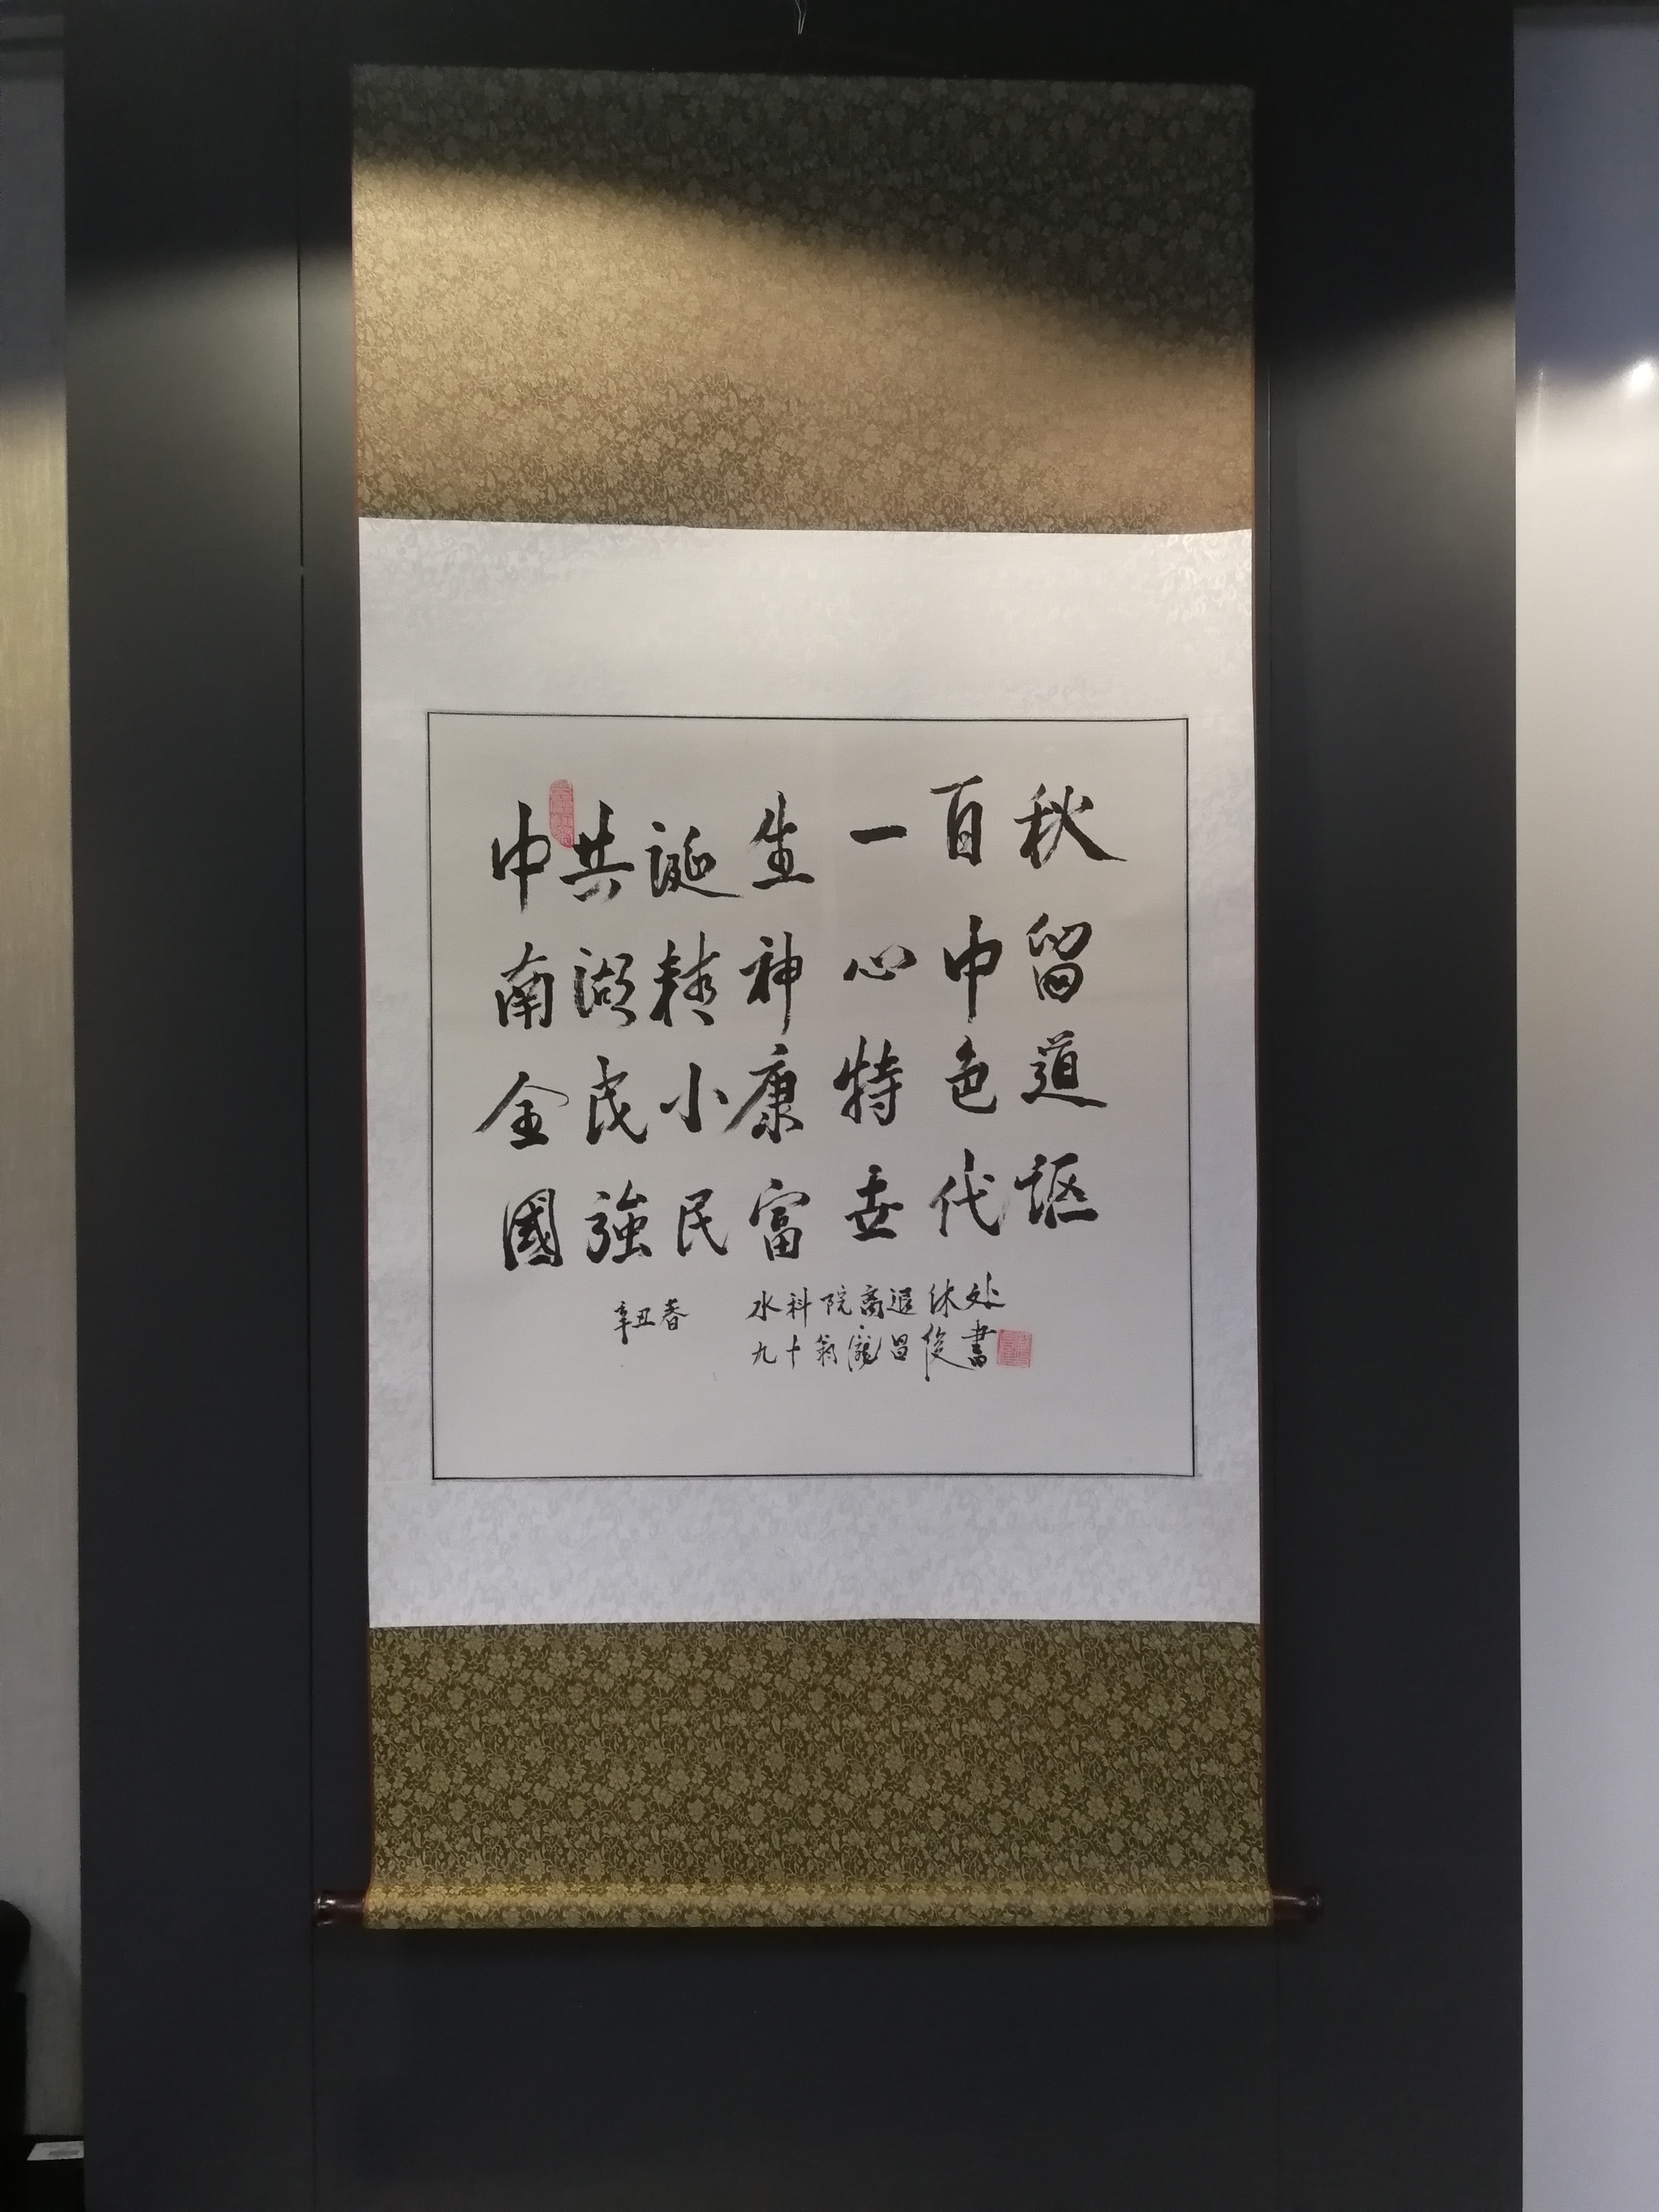 中共誕生一百秋
南湖精神心中留
全民小康特色道
國強民富世代謳
辛丑春 水科院离退休处
九十翁龐昌俊書